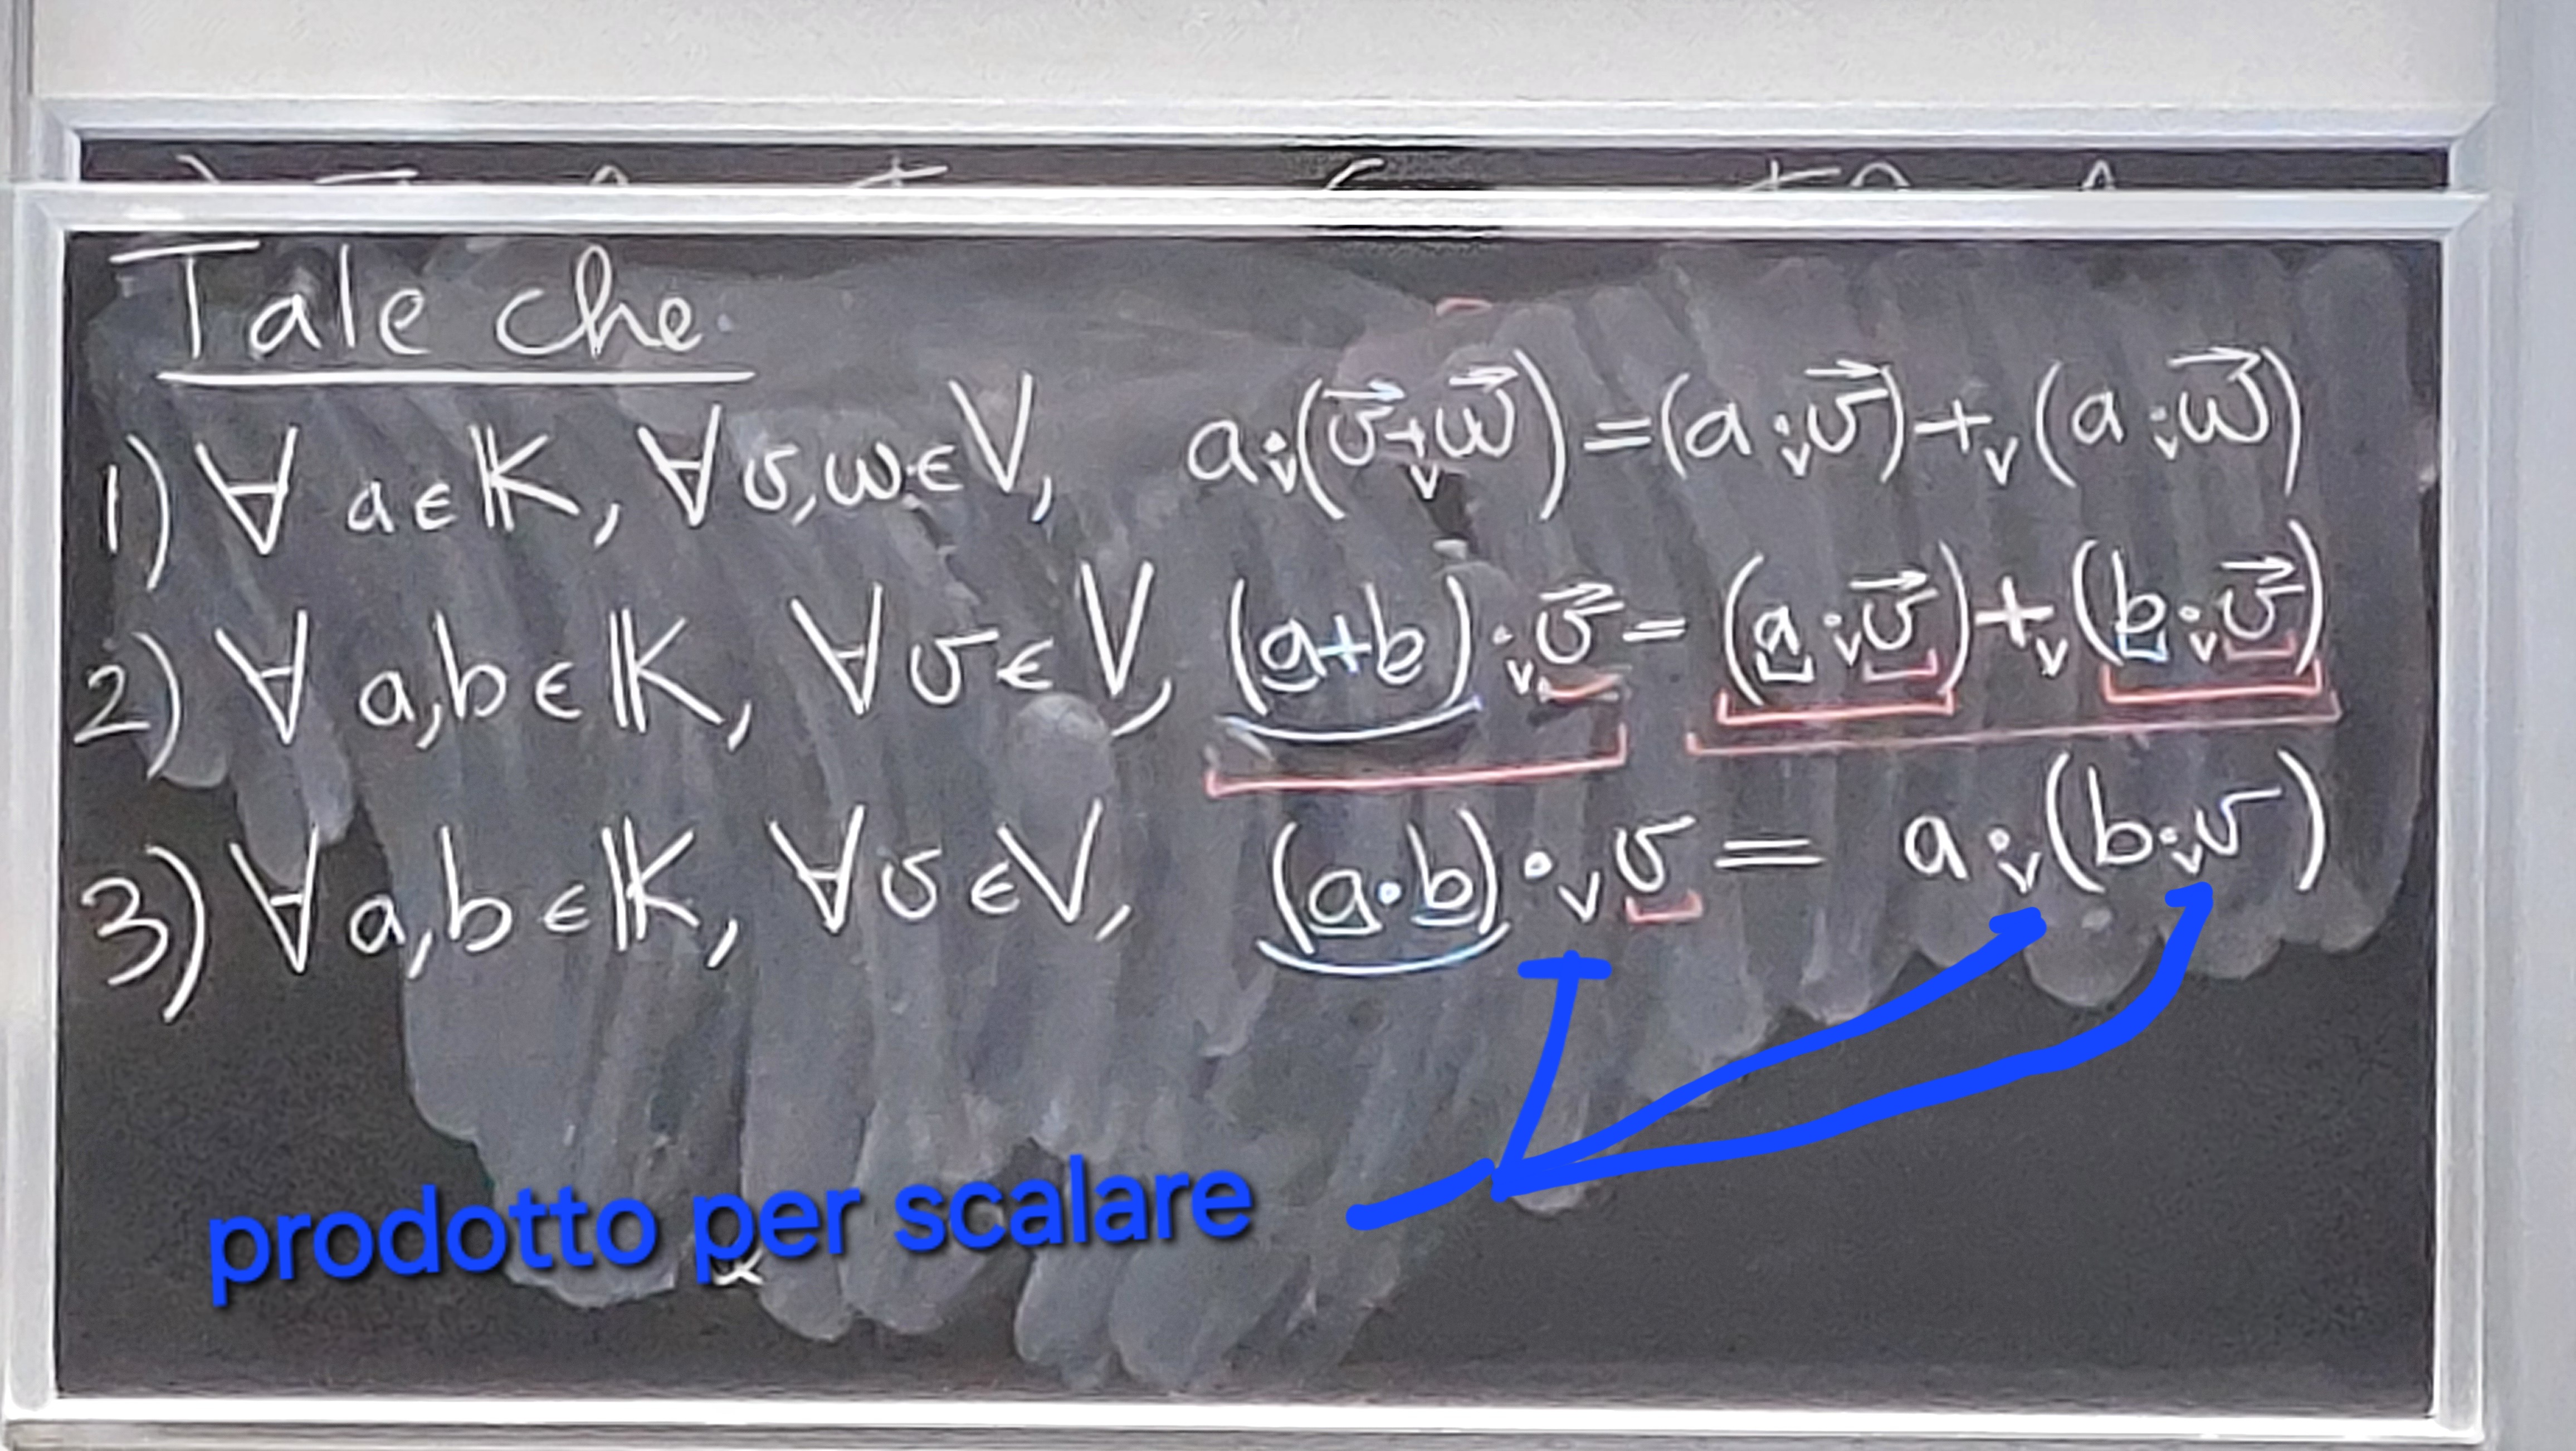 Tale che
1) ∀ a ∈ 𝕂, ∀ v, w ∈ V, a ·ᵥ (v⃗ +ᵥ w⃗) = (a ·ᵥ v⃗) +ᵥ (a ·ᵥ w⃗)
2) ∀ a, b ∈ 𝕂, ∀ v ∈ V, (a+b) ·ᵥ v⃗ = (a ·ᵥ v⃗) +ᵥ (b ·ᵥ v⃗)
3) ∀ a, b ∈ 𝕂, ∀ v ∈ V, (a·b) ·ᵥ v = a ·ᵥ (b ·ᵥ v)
prodotto per scalare